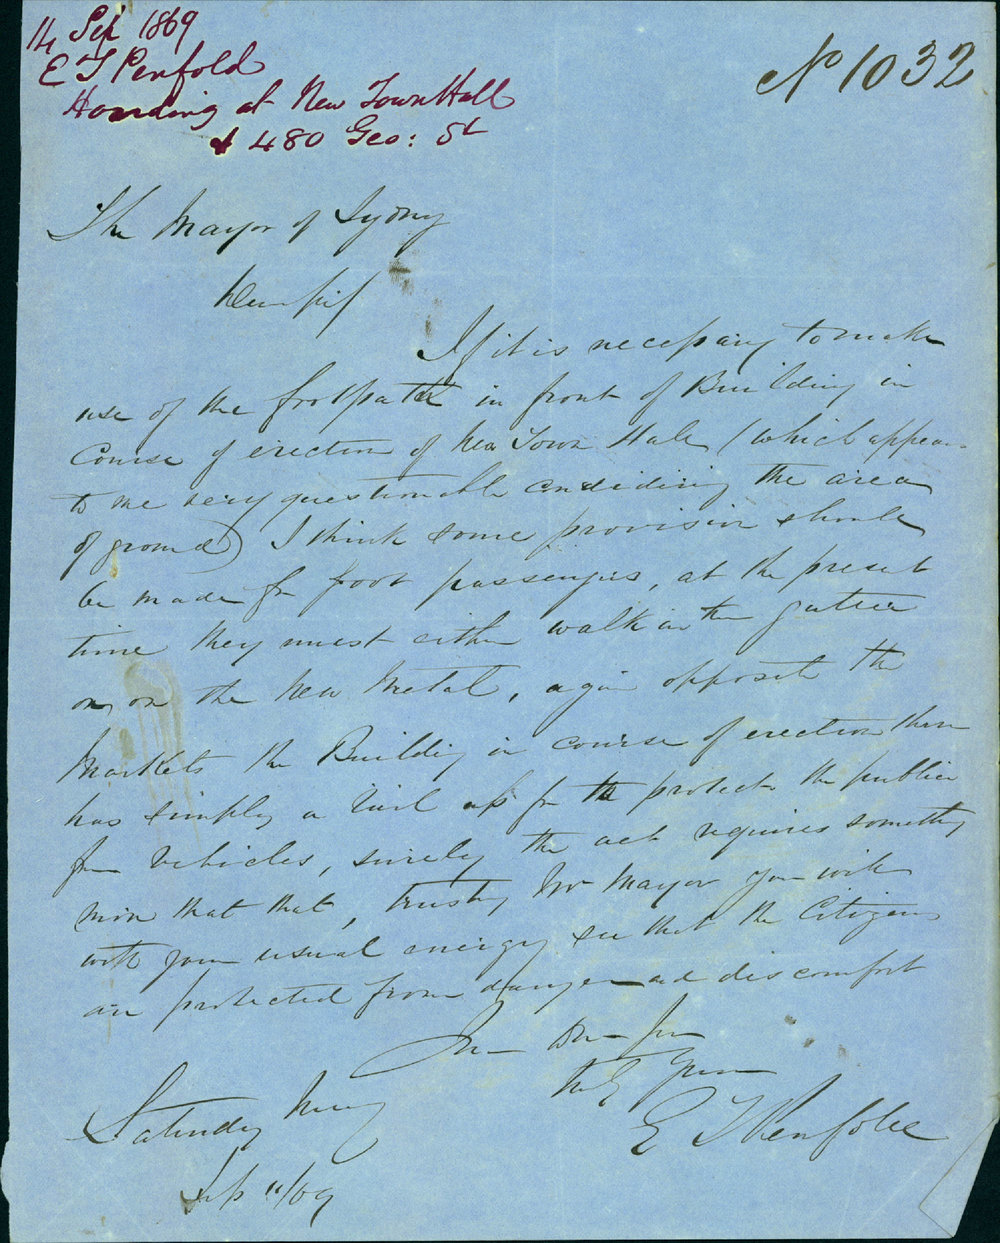 14 Sep 1869
E T Penfold
Hoarding at New Town Hall
& 480 Geo: St
No 1032
The Mayor of Sydny
Dear Sir
If it is necessary to make
use of the footpath in front of Building in
Course of erection of New Town Hall (which appears
to me very questionable considering the area
of ground) I think some provision should
be made for foot passengers, at the present
time they must either walk in the gutter
or on the New Metal, again opposite the
Markets the Building in course of erection there
has simply a rail up for the protect the public
from Vehicles, surely the act requires something
more than that, trusting Mr Mayor you will
with your usual energy see that the Citizens
are protected from danger and discomfort
I am Dear Sir
truly Yours
E T Penfold
Saturday Morng
Sep 11/69